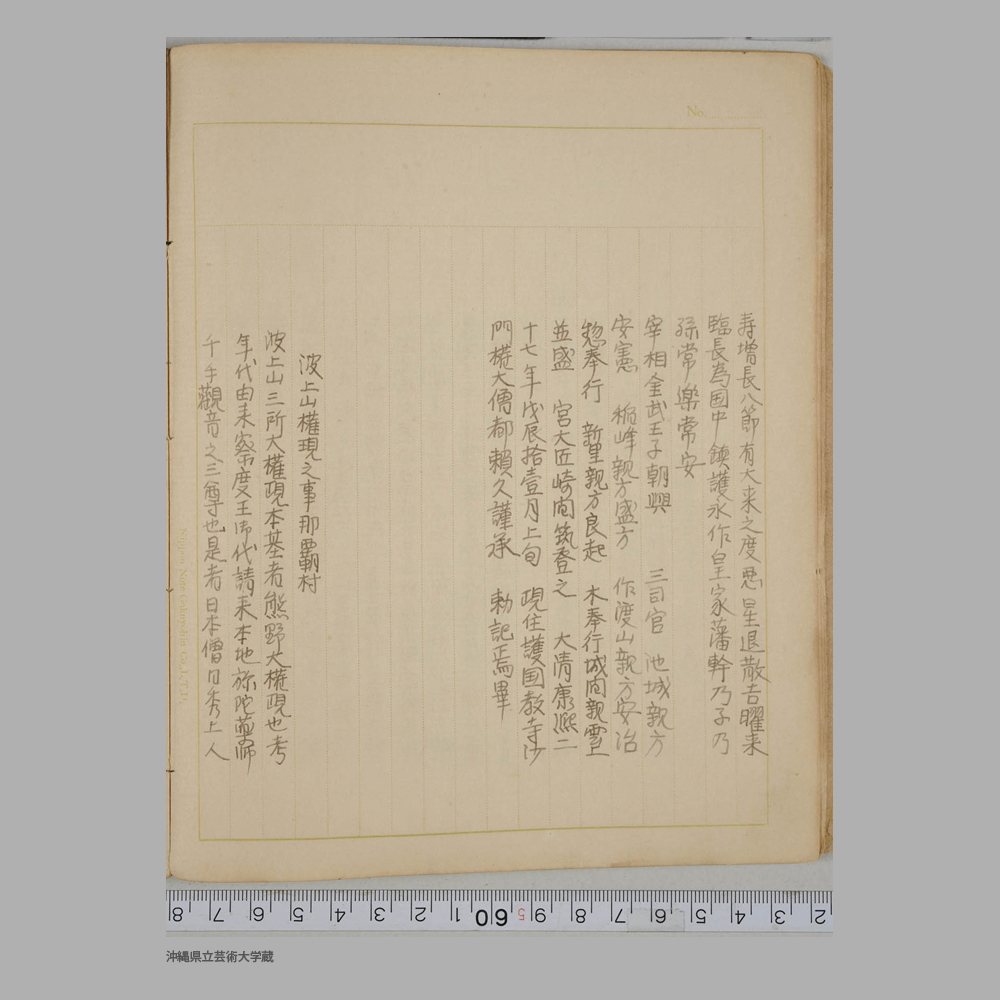 No.
寿増長八節有大来之度悪星退散吉曜来
臨長為国中鎮護永作皇家藩幹乃子乃
孫常楽常安
宰相金武王子朝興 三司官 池城親方
安憲 稲峰親方盛方 作渡山親方安治
惣奉行 新里親方良起 木奉行城間親雲上
並盛 宮大匠崎間筑登之 大清康熈二
十七年戊辰拾壹月上旬 現住護国教寺沙
門権大僧都頼久謹承 勅記焉畢
波上山権現之事那覇村
波上山三所大権現本基者熊野大権現也考
年代由来察度王御代請来本地弥陀薬師
千手觀音之三尊也是者日本僧日秀上人
8 7 6 5 4 3 2 1 60 5 9 8 7 6 5 4 3 2
沖縄県立芸術大学蔵